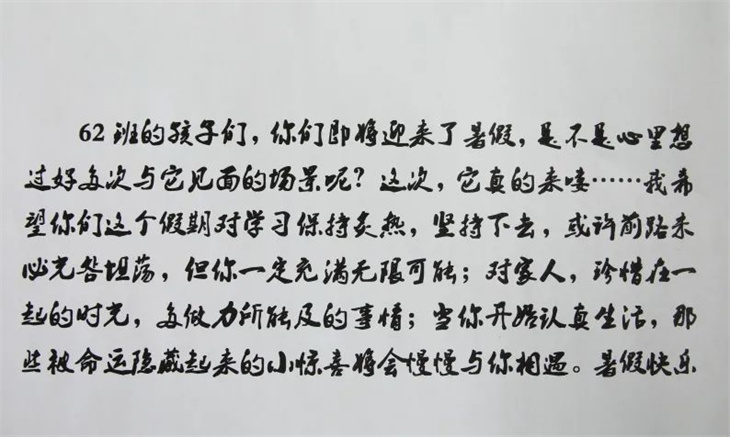 62班的孩子们，你们即将迎来了暑假，是不是心里想
过好多次与它见面的场景呢？这次，它真的来喽……我希
望你们这个假期对学习保持炙热，坚持下去，或许前路未
必充皆坦荡，但你一定充满无限可能；对家人，珍惜在一
起的时光，多做力所能及的事情；当你开始认真生活，那
些被命运隐藏起来的小惊喜将会慢慢与你相遇。暑假快乐